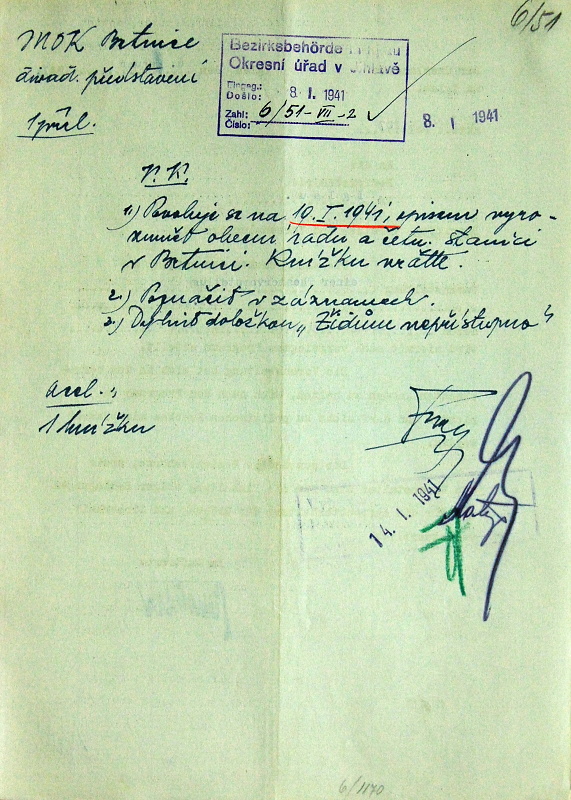 6/51
MOK Brtnice
divad. představení
1 příl.
Bezirksbehörde
Okresní úřad v Jihlavě
Eingeg.:
Došlo: 8. I. 1941
Zahl:
Číslo: 6/51-VII-2
8. I 1941
V. K.
1.) Povoluje se na 10. I. 1941, opisem vyro-
zumět obecní radu a četn. stanici
v Brtnici. Knížku vraťte.
2.) Poznačit v záznamech.
3.) Doplnit doložkou „Židům nepřístupno"
accl.:
1 knížku
14. I. 1941
6/1170